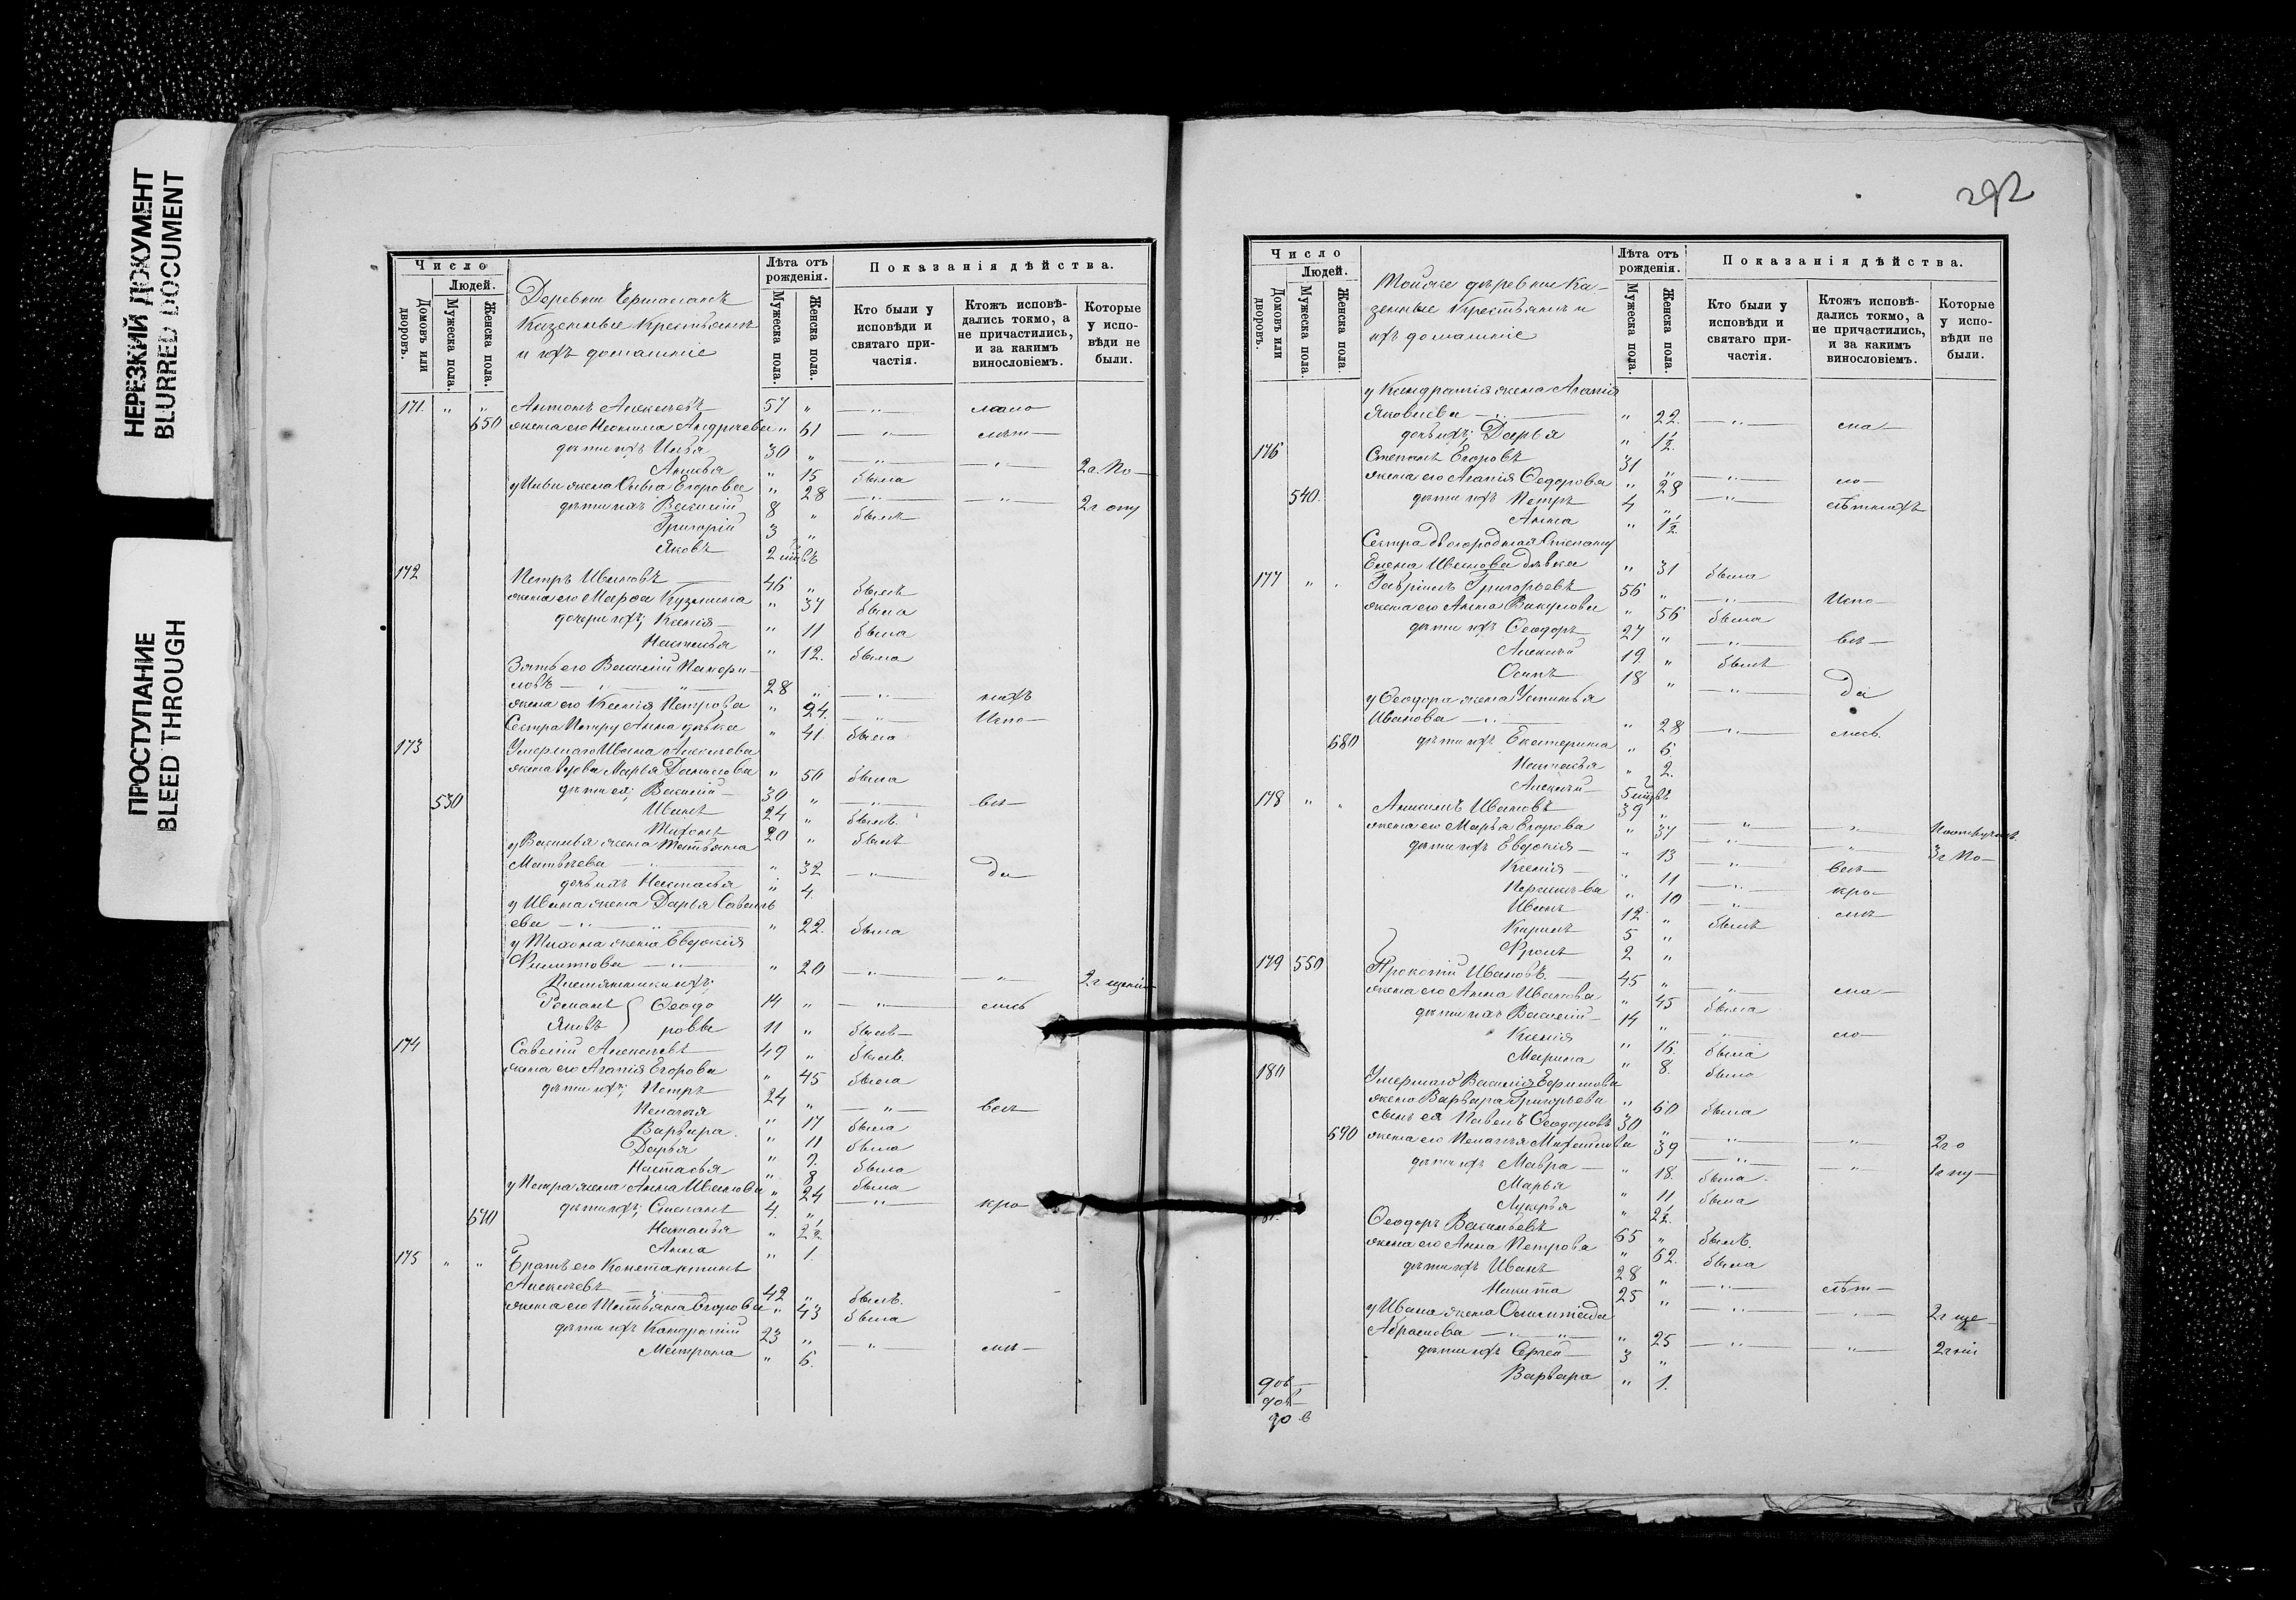 НЕРЕЗКИЙ ДОКУМЕНТ
BLURRED DOCUMENT
ПРОСТУПАНИЕ
BLEED THROUGH
Число
Людей.
Домовъ или дворовъ.
Мужеска пола.
Женска пола.
Деревни
Казенные Крестьяне
и ихъ домашніе
Лѣта отъ рожденія.
Мужеска пола.
Женска пола.
Показанія дѣйства.
Кто были у исповѣди и святаго причастія.
Ктожъ исповѣдались токмо, а не причастились, и за какимъ винословіемъ.
Которые у исповѣди не были.
171. " " Антонъ Алексѣевъ 57 " — " —
650 жена его Неонила Андреева " 61 — " —
дѣти ихъ Илья 30 " — " — — " — 2г. по—
Анисья " 15 была
у Ильи жена Ольга Егорова " 28 — " — — " — 2г опу
дѣти ихъ Василій 8 " былъ
Григорій 3 "
Яковъ 2
172 Петръ Ивановъ 46 " былъ
жена его Марѳа Кузмина " 37 была
дочери ихъ; Ксенія " 11 была
Наталья " 12. была
Зять его Василій
28 " — " — нихъ
жена его Ксенія Петрова " 24. — " — Испо—
Сестра Петру Анна дѣвка " 41. была
173 Умершаго Ивана Алексѣева
жена вдова Марья Данилова " 50 была
530 дѣти ея; Василій 30 " — " — вѣ—
Иванъ 24 " былъ.
Тихонъ 20 " былъ
у Василья жена Татьяна
Матвѣева — " — " 32 — " — да
дочь ихъ Настасья " 4.
у Ивана жена Дарья Савель
ева — " — " 22. была
у Тихона жена Евдокія
Филипова — " — " 20 — " — — " — 2г щеніи
Племянники ихъ;
Романъ } Ѳеодо 14 " — " — лись
Яковъ } ровы 11 " былъ
174 Савелій Алексѣевъ 49 " былъ.
жена его Агапія Егорова " 45 была
дѣти ихъ; Петръ 24 " — " — вѣ—
Пелагея " 17 была
Варвара " 11 была
Дарья " 9. была
Настасья " 8 была
у Петра жена Анна Иванова " 24 — " — кро
дѣти ихъ; Степанъ 4. "
670 Наталья " 2½
Анна " 1.
175 " " Братъ его Константинъ
Алексѣевъ 42 " былъ.
жена его Татьяна Егорова " 43 была
дѣти ихъ Кондратій 23 " — " —
Матрона " 6.
292
Число
Людей.
Домовъ или дворовъ.
Мужеска пола.
Женска пола.
Тойже деревни Ка—
зенные Крестьяне и
ихъ домашніе
Лѣта отъ рожденія.
Мужеска пола.
Женска пола.
Показанія дѣйства.
Кто были у исповѣди и святаго причастія.
Ктожъ исповѣдались токмо, а не причастились, и за какимъ винословіемъ.
Которые у исповѣди не были.
у Кондратія жена Агапія
Яковлева — " — " 22. — " — ма—
дочь ихъ; Дарья " 1½.
176 Степанъ Егоровъ 31 "
жена его Агапія Ѳедорова " 28 — " — ло—
540. дѣти ихъ Петръ 4 " — " — лѣтнихъ
Анна " 1½
Сестра двоюродная Степану
Елена Иванова дѣвка " 31 была
177 " " Гавріилъ Григорьевъ 56 " — " — Испо—
жена его Анна Викулова " 56 была
дѣти ихъ Ѳеодоръ 27 " — " — вѣ—
Алексѣй 19. " былъ
Осипъ 18 " — " — да
у Ѳеодора жена Устинья
Иванова — " — " 28 — " — лись.
680 дѣти ихъ Екатерина " 6
Наталья " 2.
Алексѣй 5
178 " " Аникимъ Ивановъ 39 " — " — — " —
жена его Марья Егорова " 37 — " — — " — 3г по—
дѣти ихъ Евдокія " 13 — " — вѣ—
Ксенія " 11 — " — кро—
" 10 — " —
Иванъ 12 " былъ
Карпъ 5 "
Фролъ 2 "
179 550 Прокопій Ивановъ. 45 " — " — ма—
жена его Анна Иванова " 45 была
дѣти ихъ Василій 14 " — " — ло—
Ксенія " 16. была
Марина " 8. была
180 Умершаго Василія Ефимова
жена Варвара Григорьева " 60 была
сынъ ея Павелъ Ѳеодоровъ 30 " — " — — " — 2г о
690 жена его Пелагея Михайлова " 39 — " — — " — 1г пу—
дѣти ихъ Мавра " 18. была.
Марья " 11 была
Лукерья " 2½.
Ѳеодоръ Васильевъ 65 " былъ.
жена его Анна Петрова " 62. была
дѣти ихъ Иванъ 28 " — " — лѣт—
Никита 25 " — " — — " — 2г ще—
у Ивана жена
Абрамова — " — " 25 — " — — " — 2г ніи
дѣти ихъ Сергѣй 3 "
Варвара " 1.